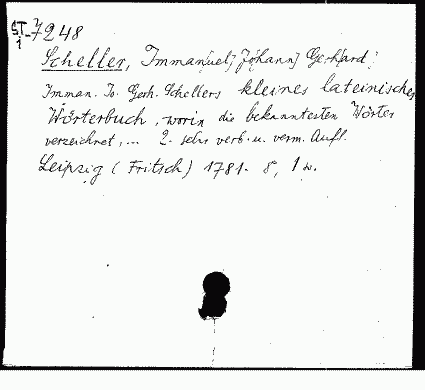 ST 7248
1
Scheller, Immanuel [Johann] Gerhard:
Imman. Jo. Gerh. Schellers kleines lateinisches
Wörterbuch, worin die bekanntesten Wörter
verzeichnet,... 2. sehr verb. u. verm. Aufl.
Leipzig (Fritsch) 1781. 8,